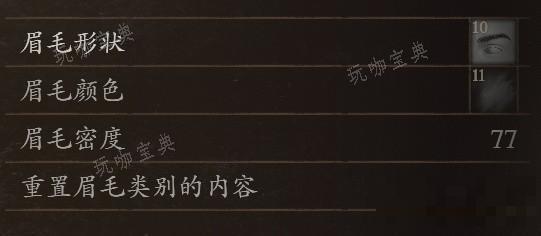 眉毛形状 10
眉毛颜色 11
眉毛密度 77
重置眉毛类别的内容
玩咖宝典
玩咖宝典
玩咖宝典